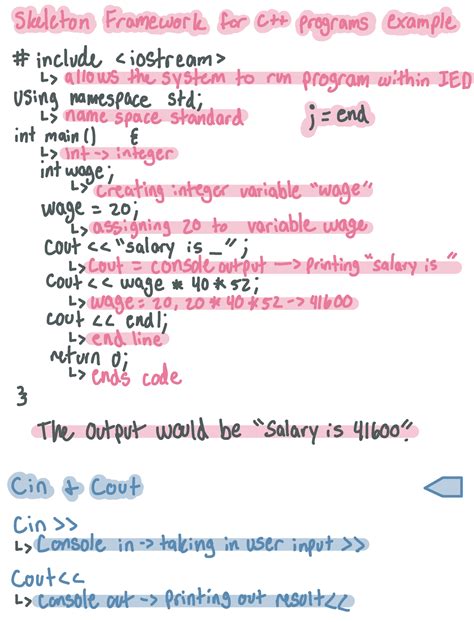 Skeleton Framework for C++ programs example
# include <iostream>
↳ allows the system to run program within IED
Using namespace std;
↳ name space standard
; = end
int main() {
↳ int -> integer
int wage;
↳ creating integer variable "wage"
wage = 20;
↳ assigning 20 to variable wage
cout << "salary is _";
↳ cout = console output —> printing "salary is "
cout << wage * 40 * 52;
↳ wage = 20, 20 * 40 * 52 -> 41600
cout << endl;
↳ end line
return 0;
↳ ends code
}
The output would be "Salary is 41600".
Cin & Cout
Cin >>
↳ Console in -> taking in user input >>
Cout <<
↳ Console out -> Printing out result <<